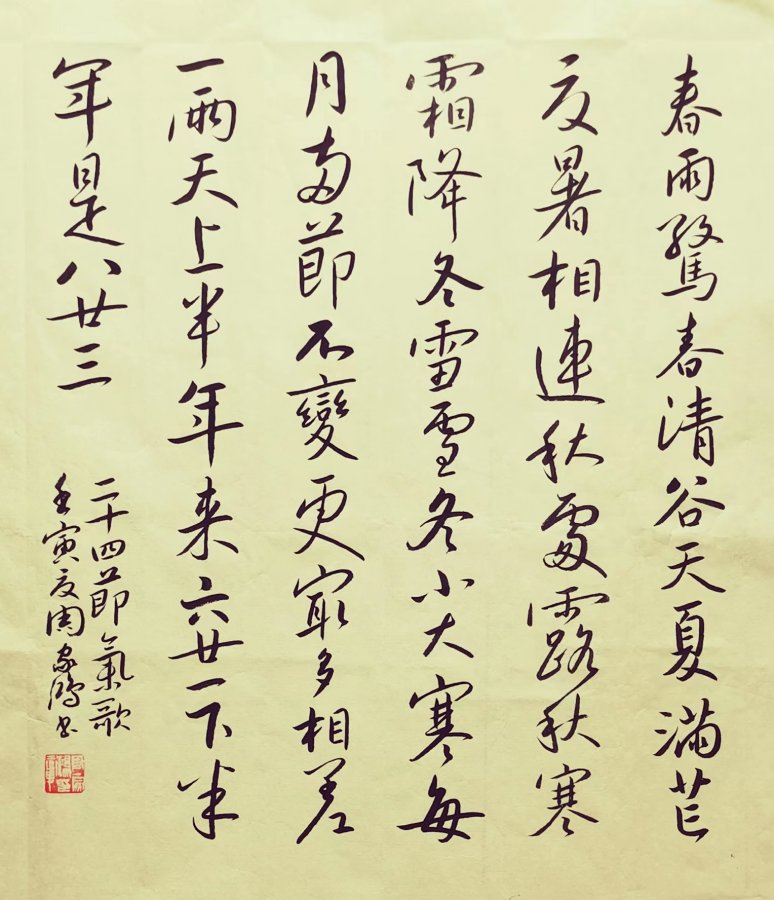 春雨驚春清谷天夏滿芒
夏暑相連秋處露秋寒
霜降冬雪雪冬小大寒每
月两節不變更最多相差
一兩天上半年来六廿一下半
年是八廿三
二十四節氣歌
壬寅夏周家鴻书